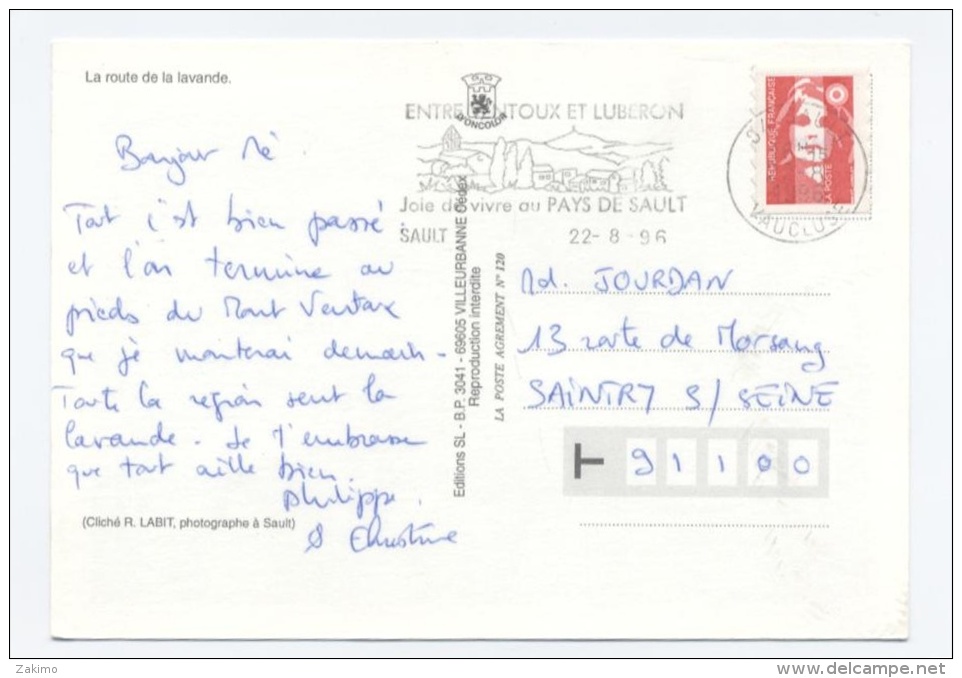 La route de la lavande.
Bonjour Mé
Tout c'est bien passé
et l'on termine au
pieds du Mont Ventoux
que je monterai demain.
Toute la région sent la
lavande. Je t'embrasse
que tout aille bien.
Philippe.
& Christine
(Cliché R. LABIT, photographe à Sault)
ENTRE VENTOUX ET LUBERON
Joie de vivre au PAYS DE SAULT
SAULT 22-8-96
VAUCLUSE
REPUBLIQUE FRANÇAISE
LA POSTE
Editions SL - B.P. 3041 - 69605 VILLEURBANNE Cédex
Reproduction interdite
LA POSTE AGREMENT N° 120
Md. JOURDAN
13 route de Morsang
SAINTRY S/ SEINE
T 91100
Zakimo
delcampe.net